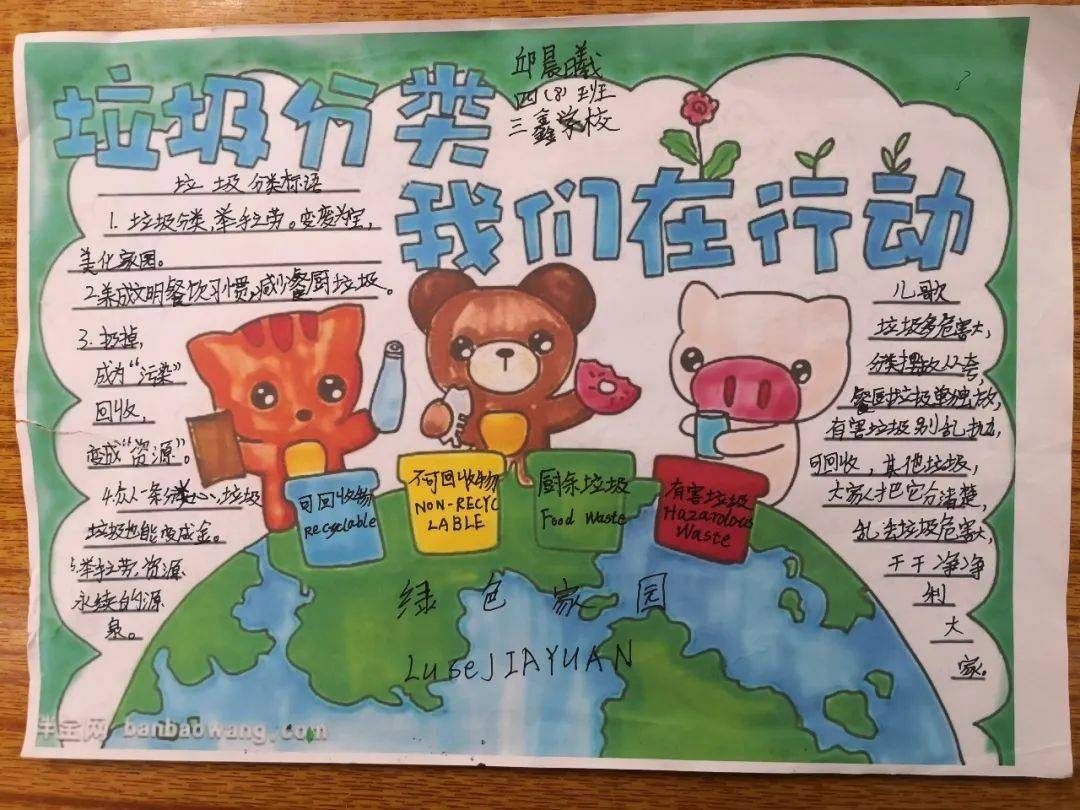 邱晨曦
四(8)班
三鑫学校
垃圾分类
我们在行动
垃圾分类标语
1. 垃圾分类,举手之劳。变废为宝,
美化家园。
2.养成文明餐饮习惯,减少餐厨垃圾。
3. 扔掉,
成为“污染”
回收,
变成“资源”。
4.众人一条分类心,垃圾
垃圾也能变成金。
5.举手之劳,资源
永续的源
泉。
儿歌
垃圾多危害大,
分类摆放人人夸
餐厨垃圾单独放,
有害垃圾别乱扔,
可回收,其他垃圾,
大家把它分清楚,
乱丢垃圾危害大,
干干净净
利
大
家。
可回收物
Recyclable
不可回收物
NON-RECYC
LABLE
厨余垃圾
Food Waste
有害垃圾
Hazardous
Waste
绿色家园
LuseJIAYUAN
banbaowang.com